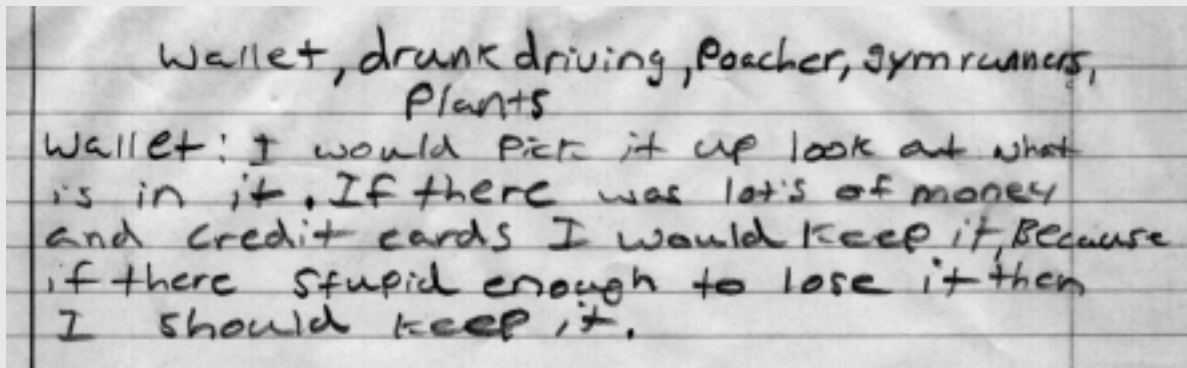 Wallet, drunk driving, Poacher, gym runners,
Plants
Wallet: I would pick it up look at what
is in it. If there was lot's of money
and credit cards I would keep it, Because
if there stupid enough to lose it then
I should keep it.